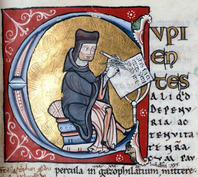 CVPI
EN
TES
ALIQ'D
DEPENV
RIA AC
TENVITA
TE NRA
CVM PAV
percula in gazophilatium mittere.